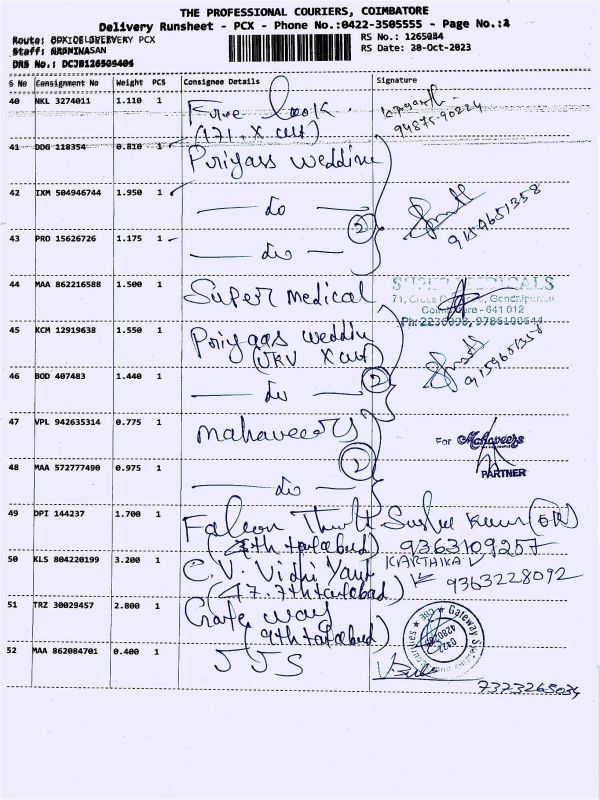 THE PROFESSIONAL COURIERS, COIMBATORE
Delivery Runsheet - PCX - Phone No.:0422-3505555 - Page No.:
RS No.: 1265084
Staff:
RS Date: 20-Oct-2023
DRS No.:
S No Consignment No Weight PCS Consignee Details Signature
40 NKL 3274011 1.110 1 Free look
(171. X cut)
94875-90224
41 DDG 118354 0.810 1 Priyass weddin
42 IXM 504946744 1.950 1 — do —
2
9159651358
43 PRO 15626726 1.175 1 — do —
44 MAA 862216588 1.500 1 Super medical
SUPER MEDICALS
71, Cross
641 012
Ph: 9786100644
45 KCM 12919638 1.550 1 Priyaas weddin
X cut)
9159651358
46 BOD 407483 1.440 1 — do —
2
47 VPL 942635314 0.775 1 mahaveers
For Mahaveers
2
PARTNER
48 MAA 572777490 0.975 1 — do —
49 DPI 144237 1.700 1 Falcon
9363109257
50 KLS 804220199 3.200 1 C.V. Vidhi
KARTHIKA
9363228092
51 TRZ 30029457 2.800 1 Gate way
Gateway
52 MAA 862084701 0.400 1 JJS
7373265034